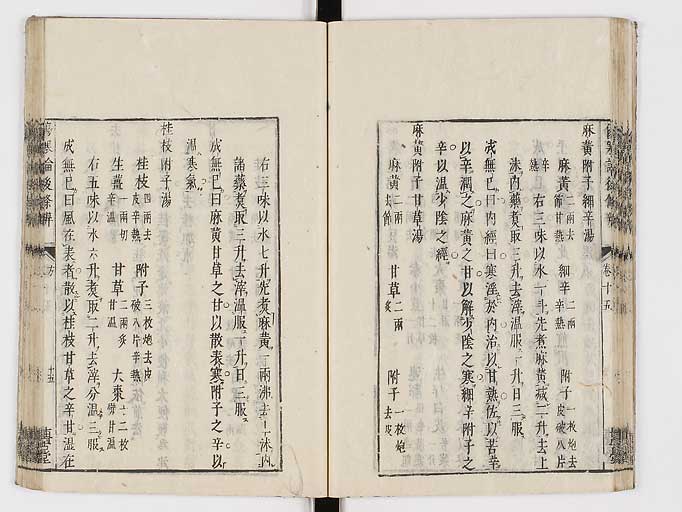 麻黃附子細辛湯
麻黃 二兩去節甘熱 細辛 二兩辛熱 附子 一枚炮去皮破八片辛熱
右三味以水一斗先煮麻黃減二升去上
沫內藥煮取三升去滓溫服一升日三服
成無已曰內經曰寒淫於內治以甘熱佐以苦辛
以辛潤之麻黃之甘以解少陰之寒細辛附子之
辛以溫少陰之經
麻黃附子甘草湯
麻黃 二兩去節 甘草 二兩炙 附子 一枚炮去皮
卷十五
右三味以水七升先煮麻黃一兩沸去上沫內
諸藥煮取三升去滓溫服一升日三服
成無已曰麻黃甘草之甘以散表寒附子之辛以
溫寒氣
桂枝附子湯
桂枝 四兩去皮辛熱 附子 三枚炮去皮破八片辛熱
生薑 一兩切辛溫 甘草 二兩炙甘溫 大棗 十二枚擘甘溫
右五味以水六升煮取二升去滓分溫三服
成無已曰風在表者散以桂枝甘草之辛甘濕在
傷寒論後條辨